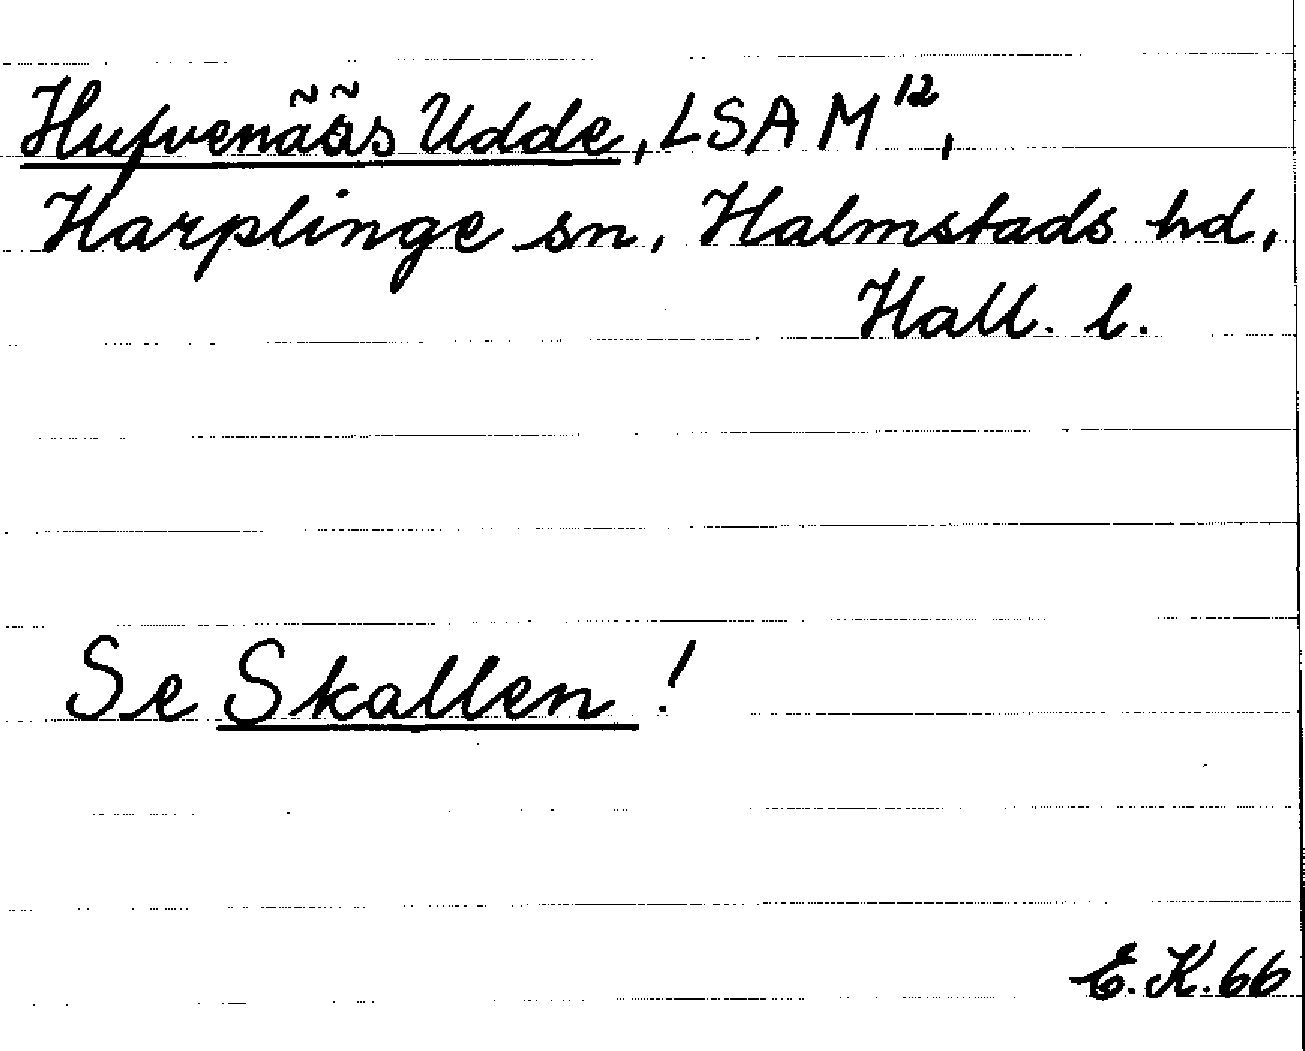 Hufvenããs Udde, LSA M¹²,
Harplinge sn, Halmstads hd,
Hall. l.
Se Skallen!
E.K.66